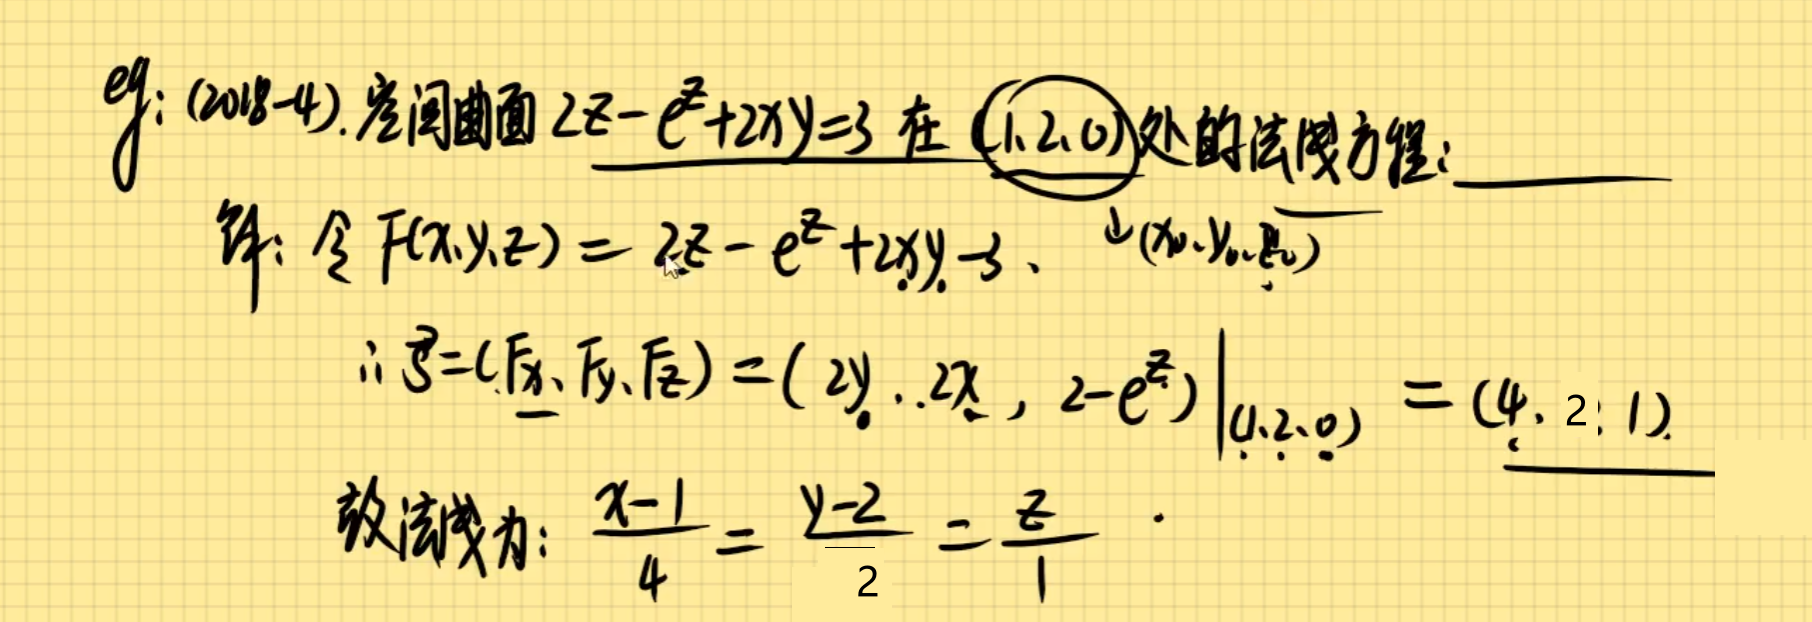 eg: (2018-4). 空间曲面 2z-e^z+2xy=3 在 (1、2、0) 处的法线方程: ______
解: 令 F(x、y、z) = 2z - e^z + 2xy - 3、 ↓(x₀、y₀、z₀)
∴ s⃗=(Fx、Fy、Fz) = ( 2y , 2x , 2-e^z ) |(1、2、0) = (4、2、1).
故法线为: (x-1)/4 = (y-2)/2 = z/1 .